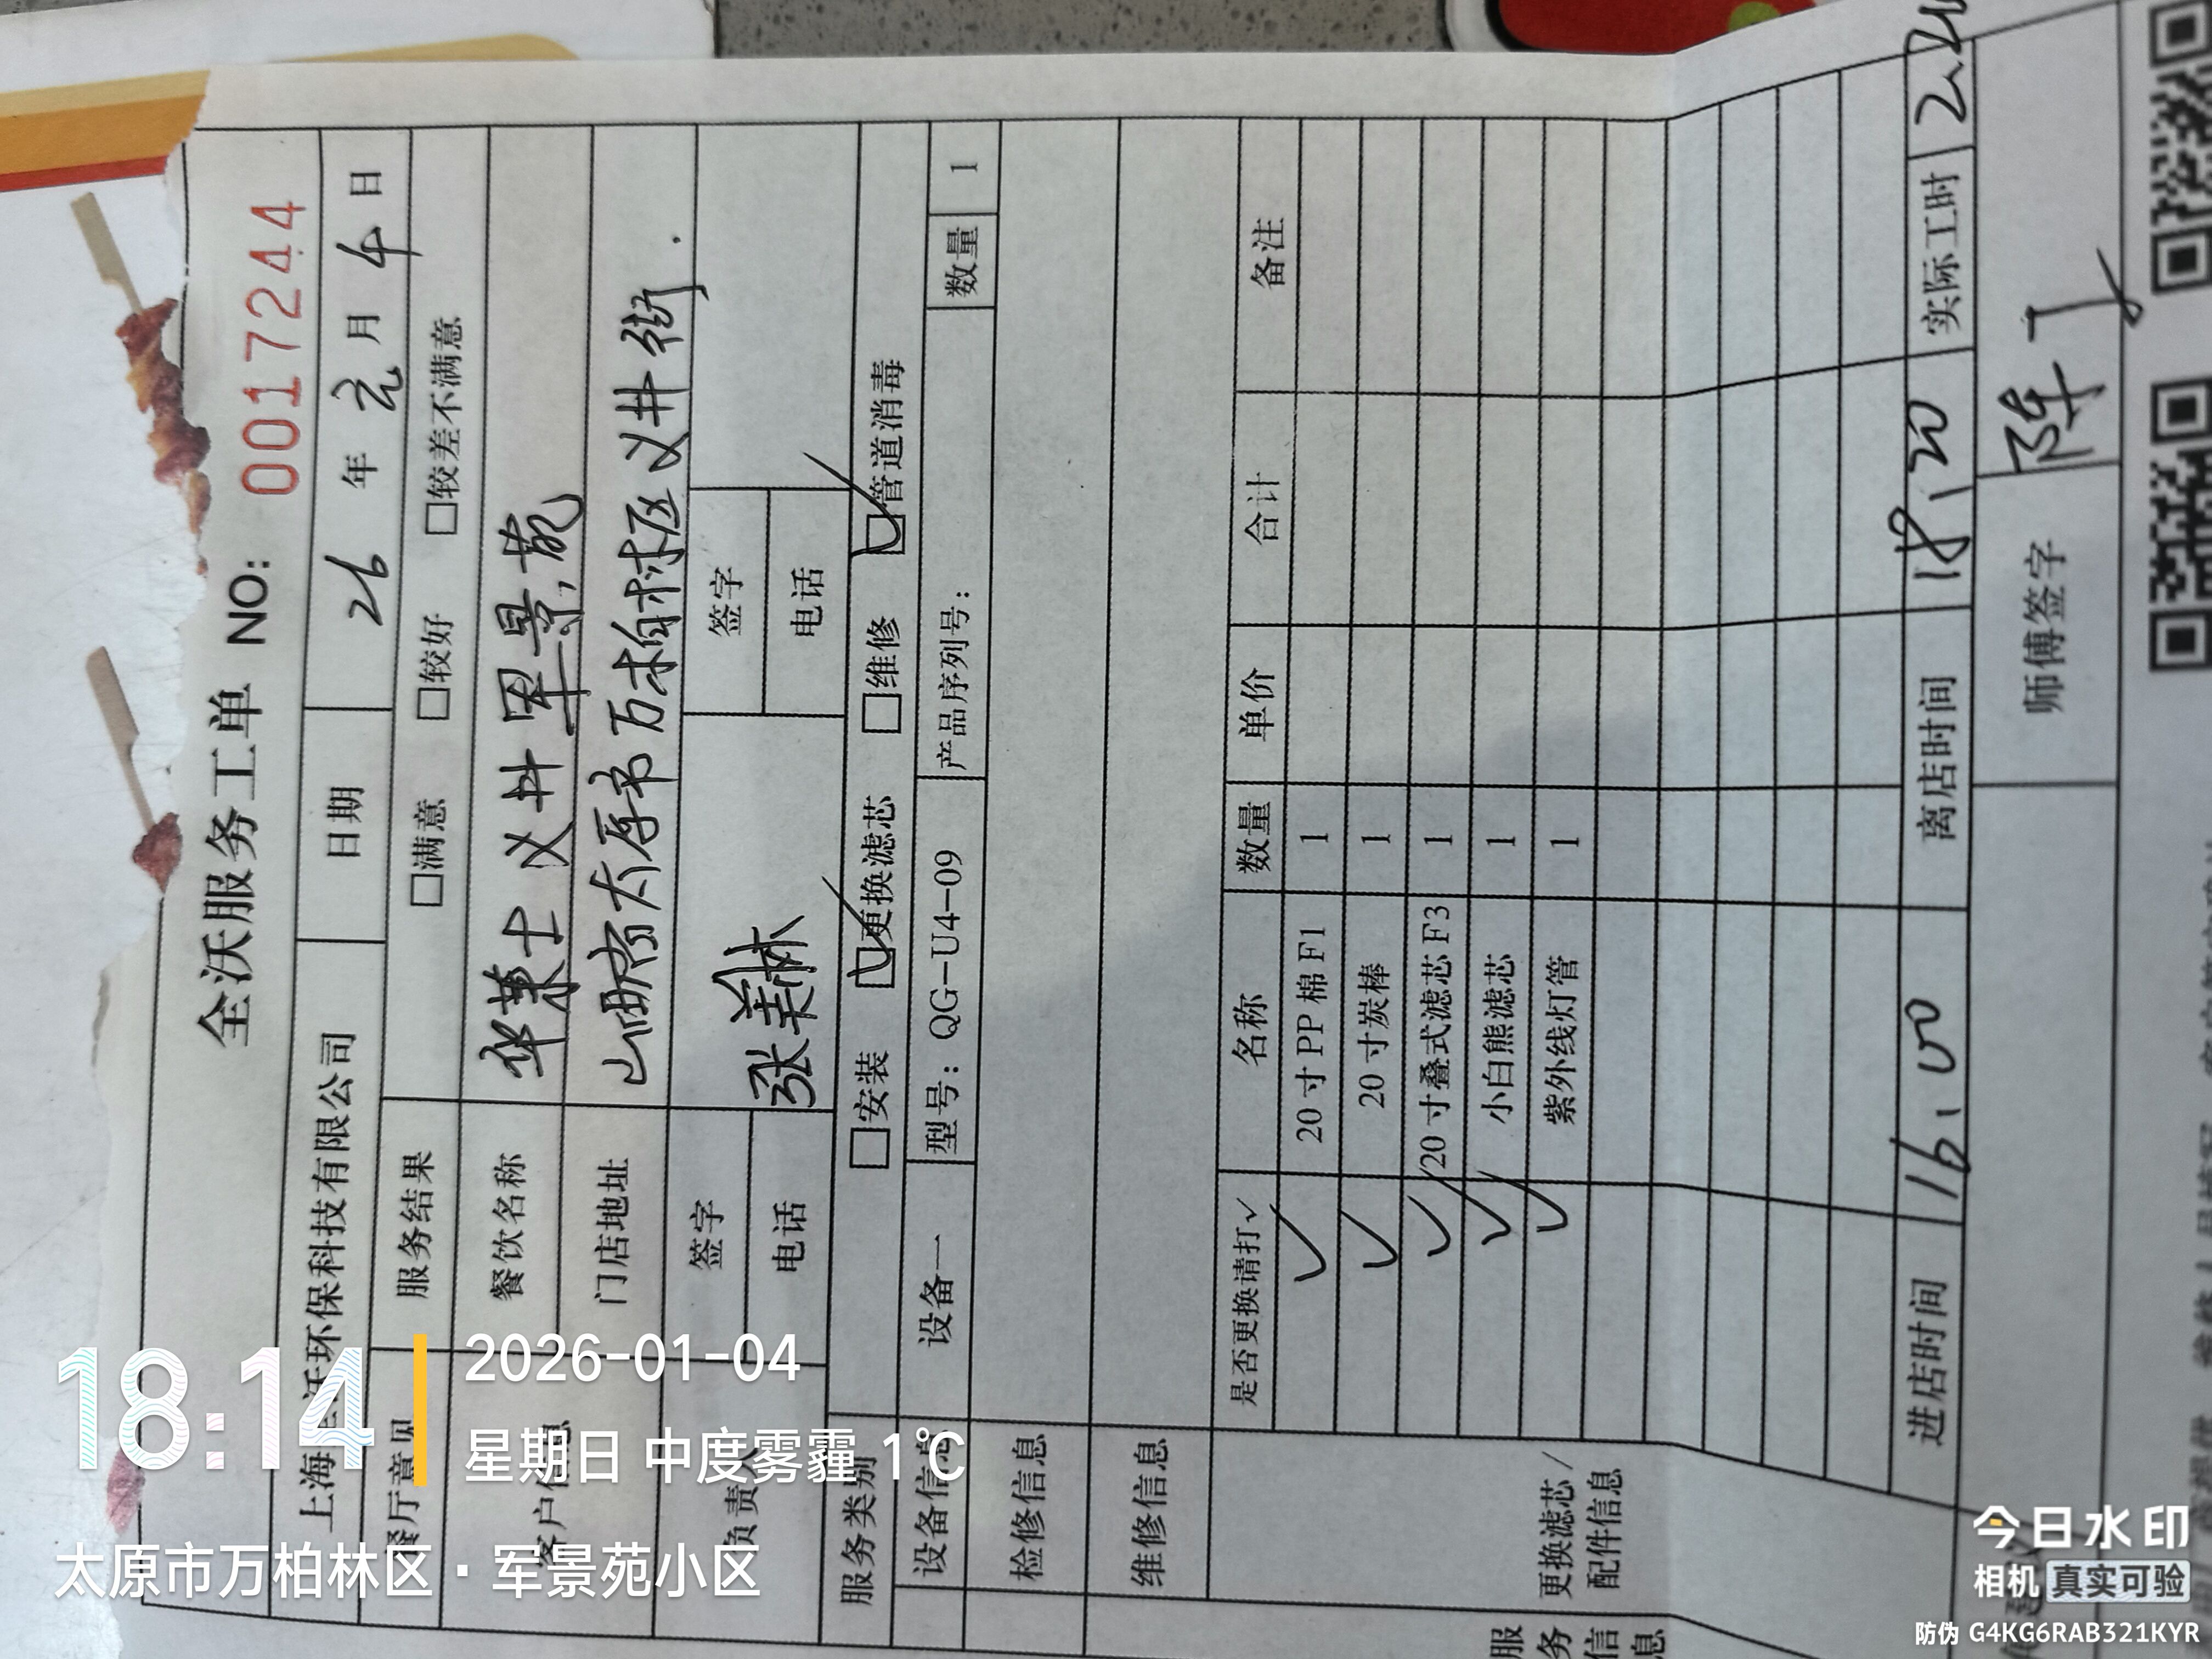 全沃服务工单 NO: 0017244
上海全沃环保科技有限公司 日期 26 年 元 月 4 日
餐厅意见 服务结果 □满意 □较好 □较差不满意
客户信息 餐饮名称 华莱士义井军景苑
门店地址 山西省太原市万柏林区义井街.
负责人 签字 张美林 签字
电话 电话
服务类别 □安装 ☑更换滤芯 □维修 ☑管道消毒
设备信息 设备一 型号：QG-U4-09 产品序列号： 数量 1
检修信息
维修信息
服务信息
更换滤芯/
配件信息
是否更换请打√ 名称 数量 单价 合计 备注
✓ 20 寸 PP 棉 F1 1
✓ 20 寸炭棒 1
✓ 20 寸叠式滤芯 F3 1
✓ 小白熊滤芯 1
✓ 紫外线灯管 1
进店时间 16:00 离店时间 18:20 实际工时
师傅签字
18:14
2026-01-04
星期日 中度雾霾 1℃
太原市万柏林区·军景苑小区
今日水印
相机 真实可验
防伪 G4KG6RAB321KYR